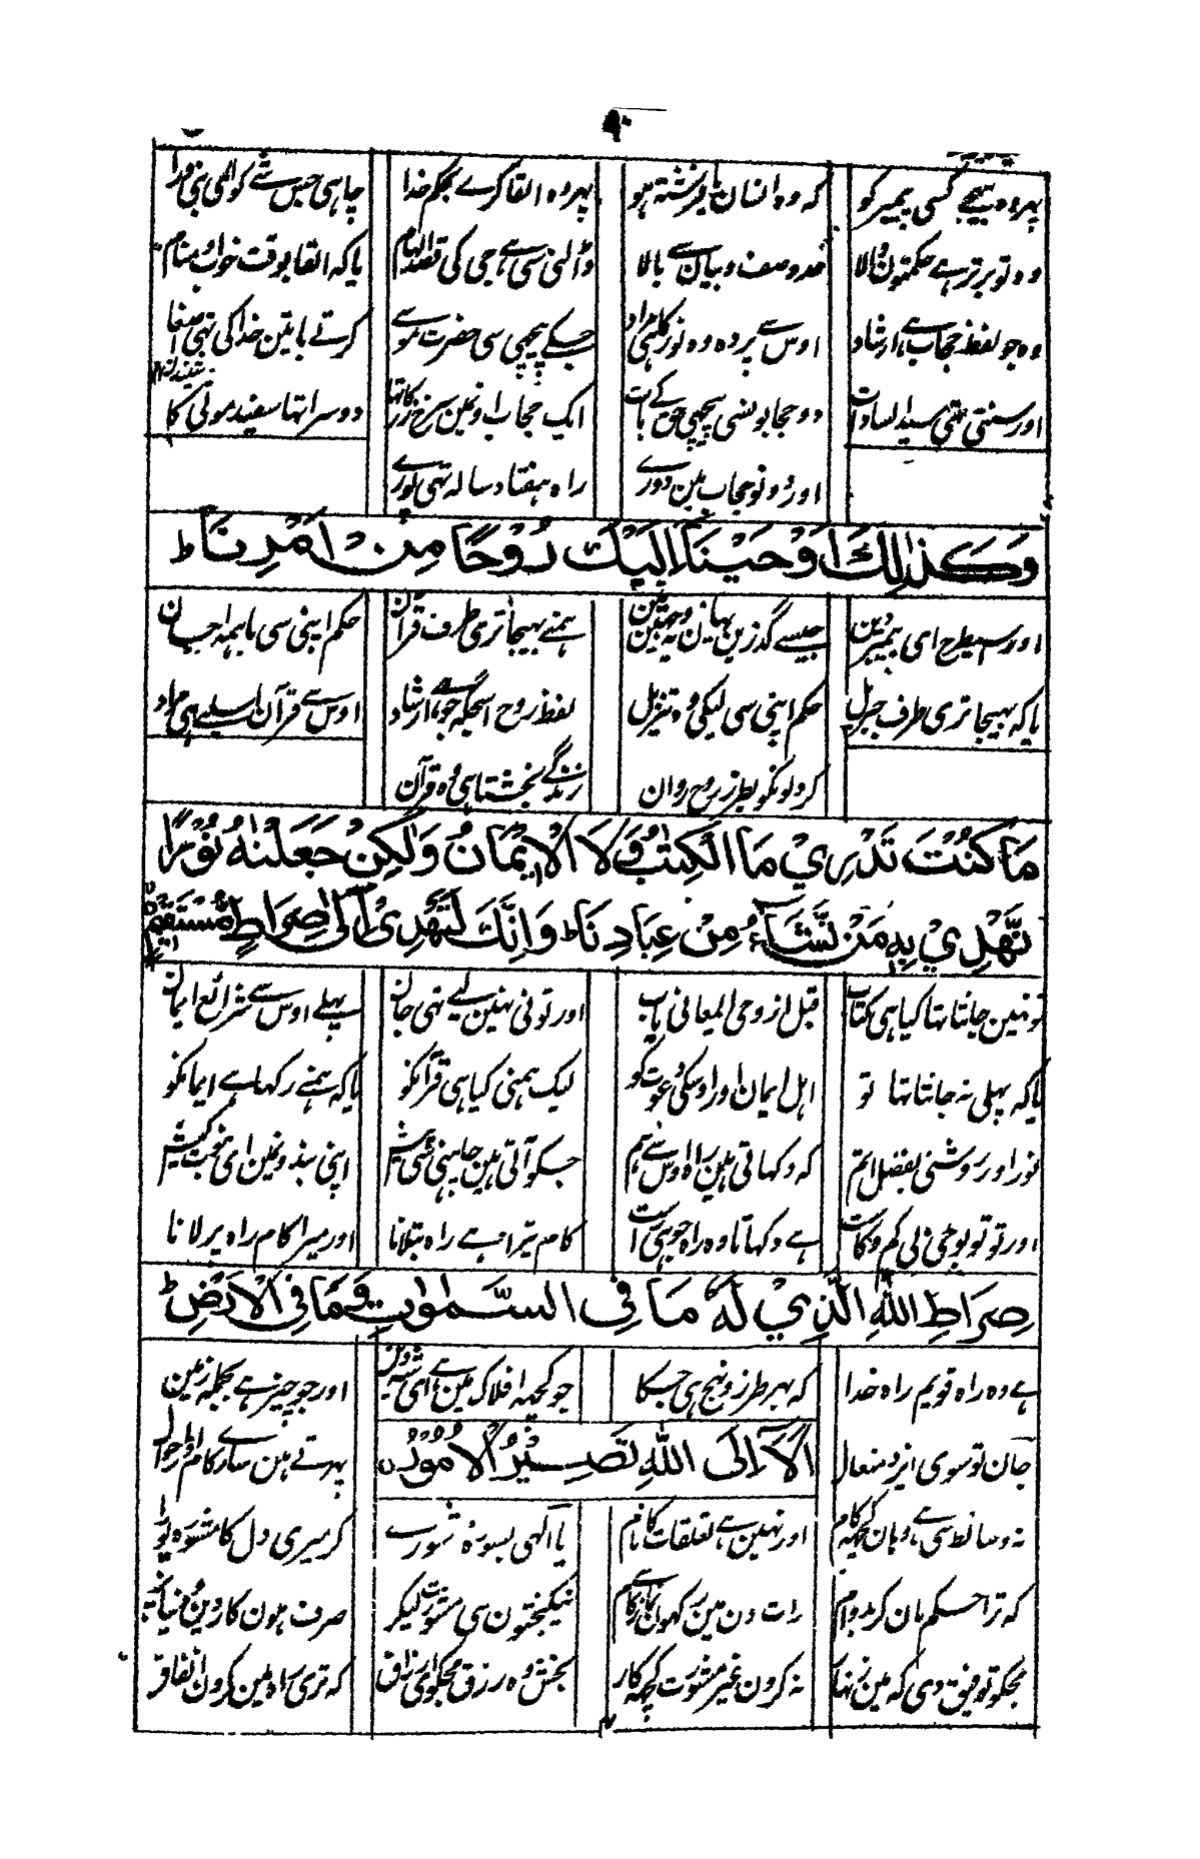 پہروہ بہیجے کسی پیمبر کو کہ وہ انسان یا فرشتہ ہو پہروہ القا کرے بحکم خدا چاہی جس شے کو الٰہی بنی
وہ تو برتر ہے حکمتون والا وصف و بیان سے بالا ڈالنی سی ہے جی کی قصد الہام یا کہ القا بوقت خواب و منام
وہ جو لفظ حجاب ہے ارشاد اوس سے پردہ وہ نور کا ہی مراد جسکے پیچھی سی حضرت موسے کرتے باتین خدا کی تہی اصغا
اور سنتی تہی سید السادات دو حجابونسی پیچھی حق کے بات ایک حجاب اونمین سرخ زر کا تہا دوسرا تہا سفید موتی کا
اور دونو حجاب مین دورے راہ ہفتاد سالہ تہی پورے
وَكَذٰلِكَ اَوْحَيْنَآ اِلَيْكَ رُوْحًا مِنْ اَمْرِنَا ط
اور اسیطرح ای پیمبر دین جیسے گذرین بہان یہ ہمنے بہیجا تری طرف قرآن حکم اپنی سی با ہمہ احسان
یا کہ بہیجا تری طرف جبریل حکم اپنی سی لیکی وہ تنزیل لفظ روح اسجگہ جو ہے ارشاد اوس سے قرآن اسلیے ہی مراد
کہ دلونکو بطرز روح روان زندگے بخشتا ہی وہ قرآن
مَا كُنْتَ تَدْرِيْ مَا الْكِتٰبُ وَلَا الْاِيْمَانُ وَلٰكِنْ جَعَلْنٰهُ نُوْرًا
نَّهْدِيْ بِهٖ مَنْ نَّشَآءُ مِنْ عِبَادِنَا ط وَاِنَّكَ لَتَهْدِىْٓ اِلٰى صِرَاطٍ مُّسْتَقِيْمٍ
تو نہین جانتا تہا کیا ہی کتاب قبل از وحی المعانی یاب اور تونی نہین لیے تہی جان پہلے اوس سے شرائع ایمان
یا کہ پہلی نہ جانتا تہا تو اہل ایمان اور اوسکی دعوت کو لیک ہمنی کیا ہی قرآنکو یا کہ ہمنے رکہا ہے ایمانکو
نور اور روشنی بفضل اتم کہ دکہاتی ہین راہ اوس سے ہم جسکو آتی ہین چاہنی اپنی بندونمین ای
اور تو تو بوحی بی کم و کاست ہے دکہاتا وہ راہ جو ہی راست کام تیرا ہے راہ بتلانا اور میرا کام راہ پر لانا
صِرَاطِ اللّٰهِ الَّذِيْ لَهٗ مَا فِى السَّمٰوٰتِ وَمَا فِى الْاَرْضِ ط
ہے وہ راہ قویم راہ خدا کہ بہر طرز و نہج ہی جسکا جو کچھ افلاک مین ہے ای اور جو چیز ہے بجملہ زمین
اَلَآ اِلَى اللّٰهِ تَصِيْرُ الْاُمُوْرُ
جان تو سوی ایزد متعال پہرتے ہین سارے کام اور احوال
نہ وسائط سی ہے وہان کچھ کام اور نہین ہے تعلقات کا نام یا الٰہی بسورۂ شورے کر میری دل کا مشورہ پورا
کہ ترا حکم مان کر بدوام رات دن مین رکہون نیکبختون سی مشورت لیکر صرف ہون کار دین و دنیا
مجکو توفیق دی کہ مین زنہار نہ کرون غیر مشورت کچھ کار بخش وہ رزق مجکو ای رزاق کہ تری راہ مین کرون انفاق